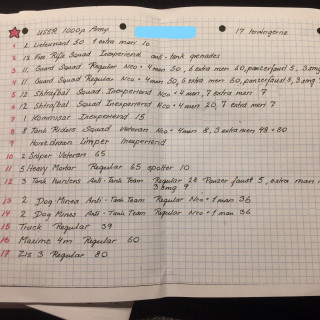 USSR 1000p Army 17 terningerne
1 2 Lieutenant 50 1 extra man 10
2 12 Fire Rifle Squad Inexperiend anti-tank grenades
3 11 Guard Squad Regular Nco + 4 man 50, 6 extra man 60, panzerfaust 5, 3 smg
4 11 Guard Squad Regular Nco + 4 man 50, 6 extra man 60, panzerfaust 5, 3 smg
5 12 Shtrafbat Squad Inexperiend Nco + 4 man 7 extra man 7
6 12 Shtrafbat Squad Inexperiend Nco + 4 man 20, 7 extra man 7
7 1 Kommusar Inexperiend 15
8 8 Tank Riders Squad Veteran Nco + 4 man 8, 3 extra man 48 + 80
9 Inexperiend
10 2 Sniper Veteran 65
11 5 Heavy Mortar Regular 65 spotter 10
12 3 Tank Hunters Anti-Tank Team Regular 28 Panzerfaust 5, extra man
3 smg 9
13 2 Dog Mines Anti-Tank Team Regular Nco + 1 man 36
14 2 Dog Mines Anti-Tank Team Regular Nco + 1 man 36
15 Truck Regular 39
16 Maxime 4m Regular 60
17 Zis 3 Regular 80